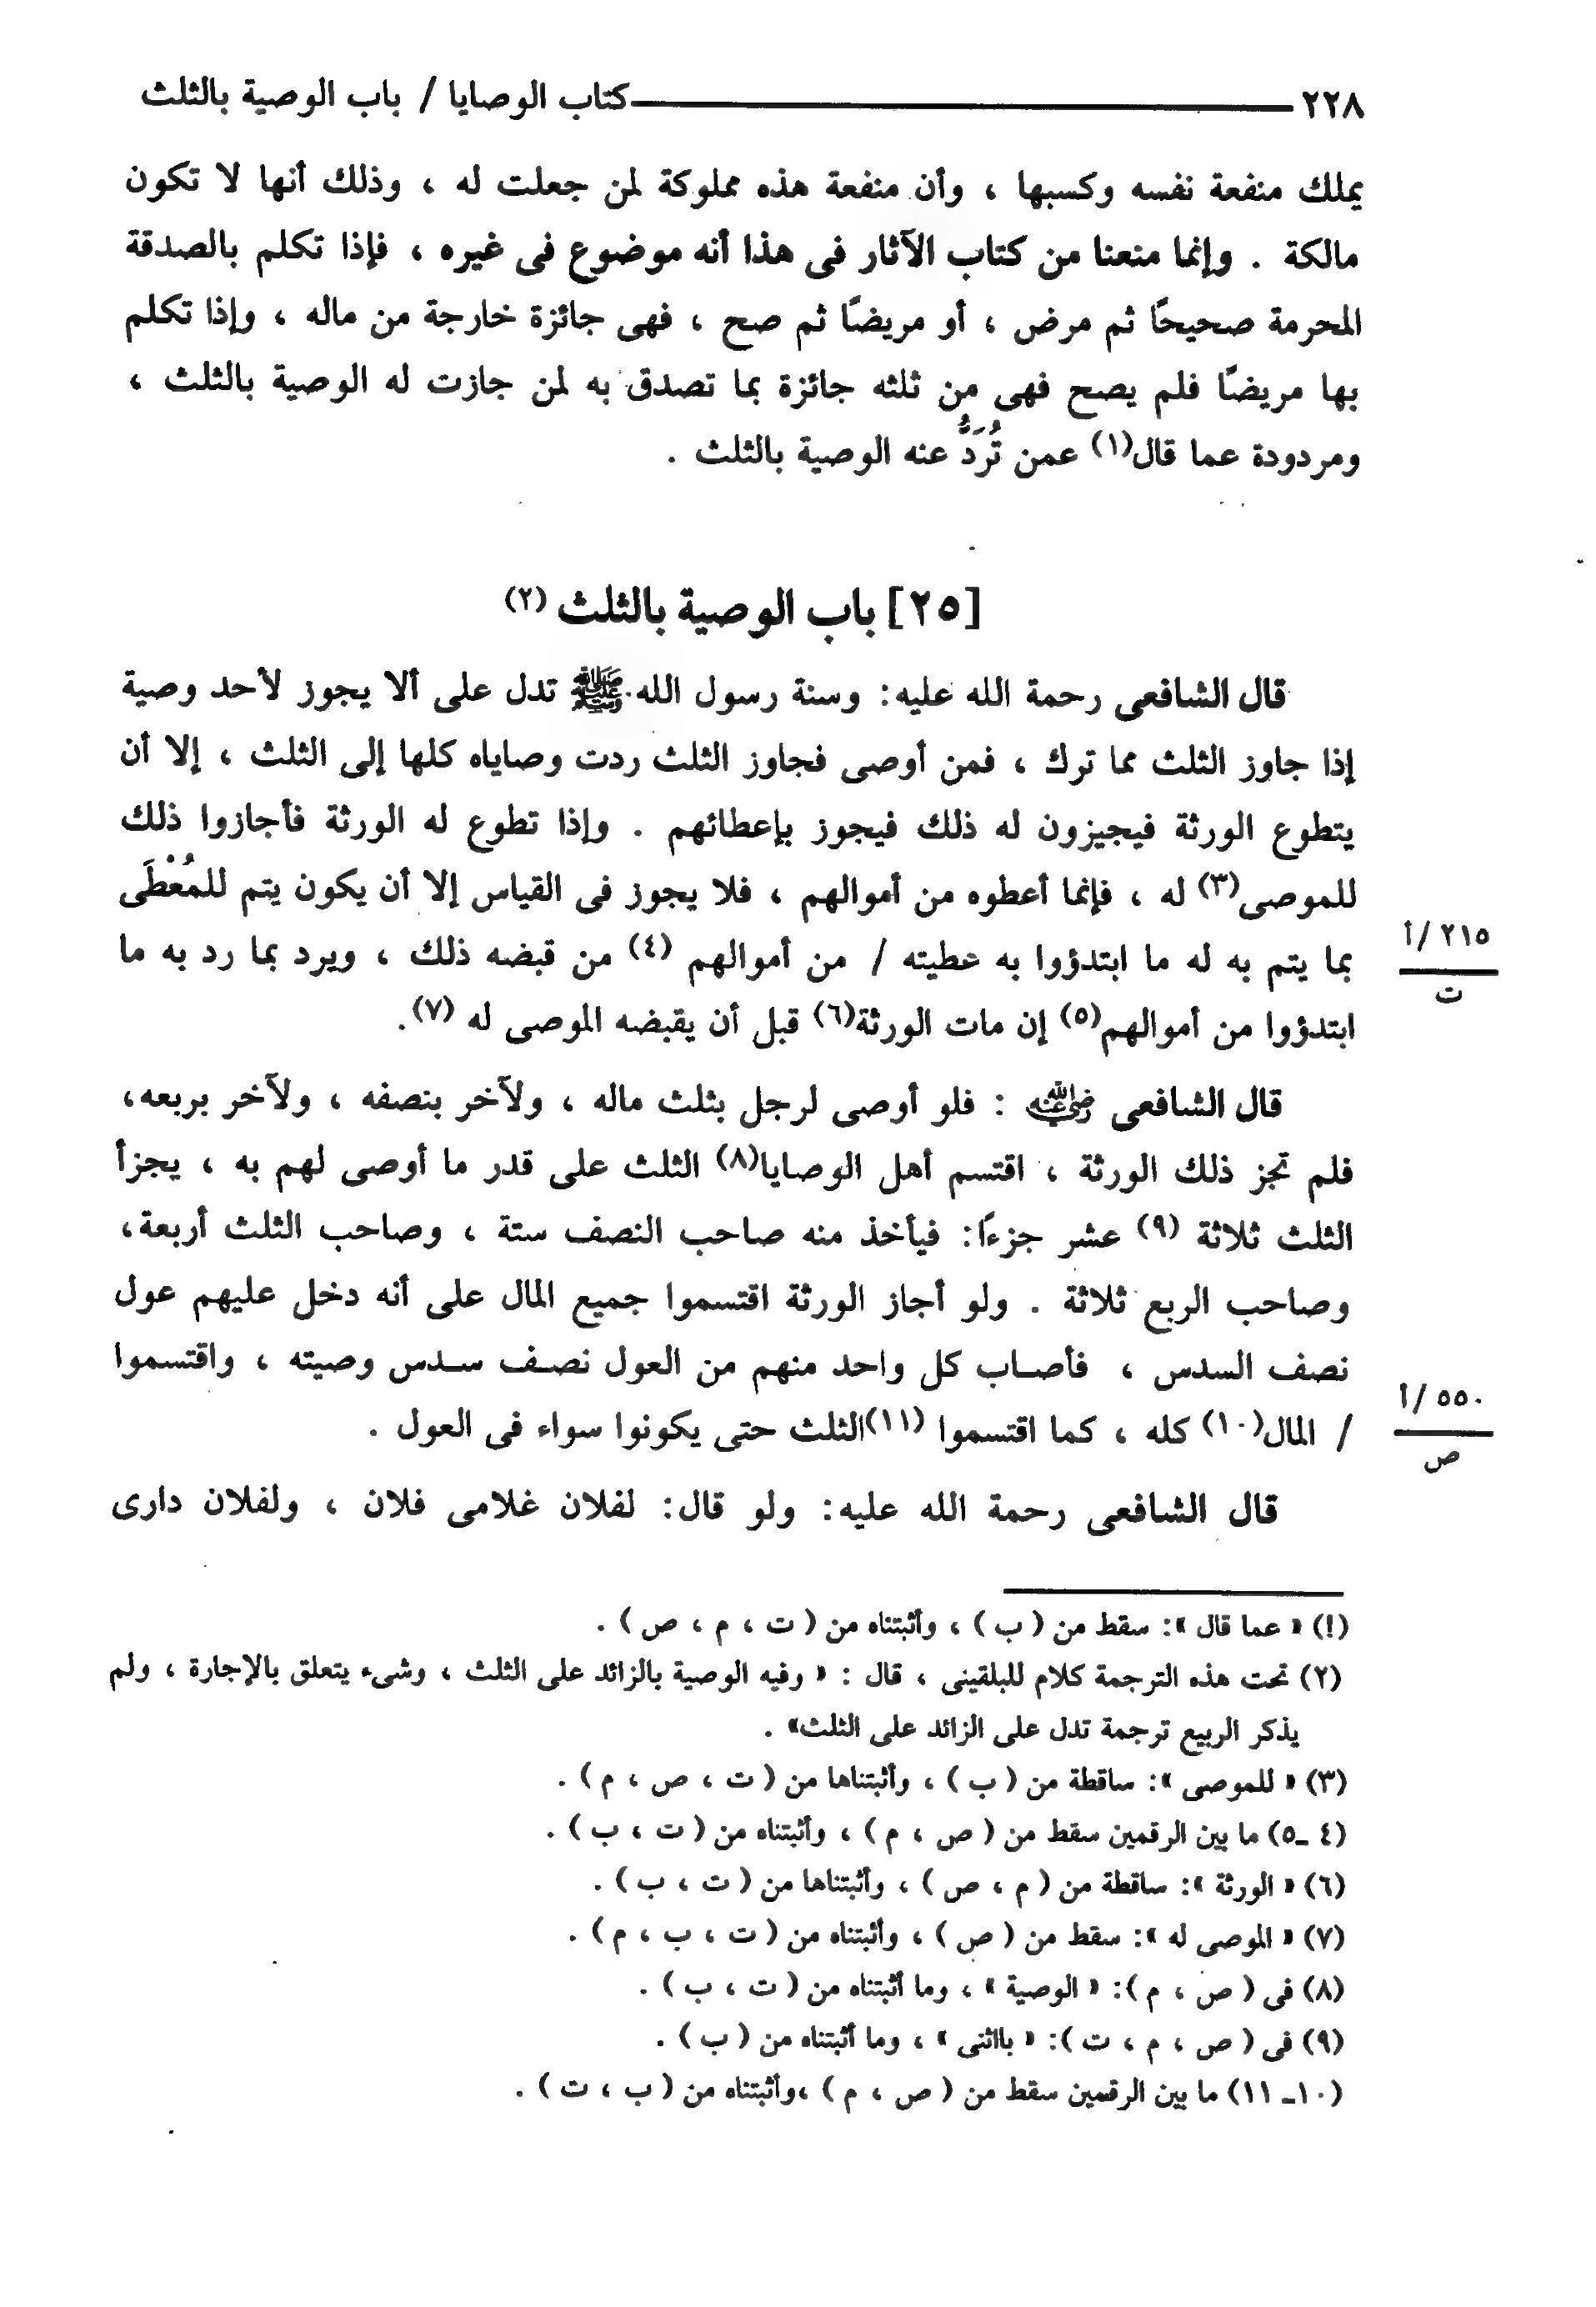 ٢٢٨ كتاب الوصايا / باب الوصية بالثلث
يملك منفعة نفسه وكسبها ، وأن منفعة هذه مملوكة لمن جعلت له ، وذلك أنها لا تكون
مالكة . وإنما منعنا من كتاب الآثار فى هذا أنه موضوع فى غيره ، فإذا تكلم بالصدقة
المحرمة صحيحًا ثم مرض ، أو مريضًا ثم صح ، فهى جائزة خارجة من ماله ، وإذا تكلم
بها مريضًا فلم يصح فهى من ثلثه جائزة بما تصدق به لمن جازت له الوصية بالثلث ،
ومردودة عما قال(١) عمن تُرَدُّ عنه الوصية بالثلث .
[٢٥] باب الوصية بالثلث (٢)
قال الشافعى رحمة الله عليه: وسنة رسول الله ﷺ تدل على ألا يجوز لأحد وصية
إذا جاوز الثلث مما ترك ، فمن أوصى فجاوز الثلث ردت وصاياه كلها إلى الثلث ، إلا أن
يتطوع الورثة فيجيزون له ذلك فيجوز بإعطائهم . وإذا تطوع له الورثة فأجازوا ذلك
للموصى(٣) له ، فإنما أعطوه من أموالهم ، فلا يجوز فى القياس إلا أن يكون يتم للمُعْطَى
بما يتم به له ما ابتدؤوا به عطيته / من أموالهم (٤) من قبضه ذلك ، ويرد بما رد به ما
٢١٥ /أ
ت
ابتدؤوا من أموالهم(٥) إن مات الورثة(٦) قبل أن يقبضه الموصى له (٧).
قال الشافعى رضي الله عنه : فلو أوصى لرجل بثلث ماله ، ولآخر بنصفه ، ولآخر بربعه،
فلم تجز ذلك الورثة ، اقتسم أهل الوصايا(٨) الثلث على قدر ما أوصى لهم به ، يجزأ
الثلث ثلاثة (٩) عشر جزءًا: فيأخذ منه صاحب النصف ستة ، وصاحب الثلث أربعة،
وصاحب الربع ثلاثة . ولو أجاز الورثة اقتسموا جميع المال على أنه دخل عليهم عول
نصف السدس ، فأصاب كل واحد منهم من العول نصف سدس وصيته ، واقتسموا
/ المال(١٠) كله ، كما اقتسموا (١١)الثلث حتى يكونوا سواء فى العول .
٥٥٠ /أ
ص
قال الشافعى رحمة الله عليه: ولو قال: لفلان غلامى فلان ، ولفلان دارى
(١) « عما قال »: سقط من ( ب ) ، وأثبتناه من ( ت ، م ، ص ) .
(٢) تحت هذه الترجمة كلام للبلقينى ، قال : « وفيه الوصية بالزائد على الثلث ، وشىء يتعلق بالإجارة ، ولم
يذكر الربيع ترجمة تدل على الزائد على الثلث» .
(٣) « للموصى »: ساقطة من ( ب ) ، وأثبتناها من ( ت ، ص ، م ) .
(٤ ـ٥) ما بين الرقمين سقط من ( ص ، م ) ، وأثبتناه من ( ت ، ب ) .
(٦) « الورثة »: ساقطة من ( م ، ص ) ، وأثبتناها من ( ت ، ب ) .
(٧) « الموصى له »: سقط من ( ص ) ، وأثبتناه من ( ت ، ب ، م ) .
(٨) فى ( ص ، م ): « الوصية » ، وما أثبتناه من ( ت ، ب ) .
(٩) فى ( ص ، م ، ت ): « بااثنى » ، وما أثبتناه من ( ب ) .
(١٠ـ ١١) ما بين الرقمين سقط من ( ص ، م ) ،وأثبتناه من ( ب ، ت ) .